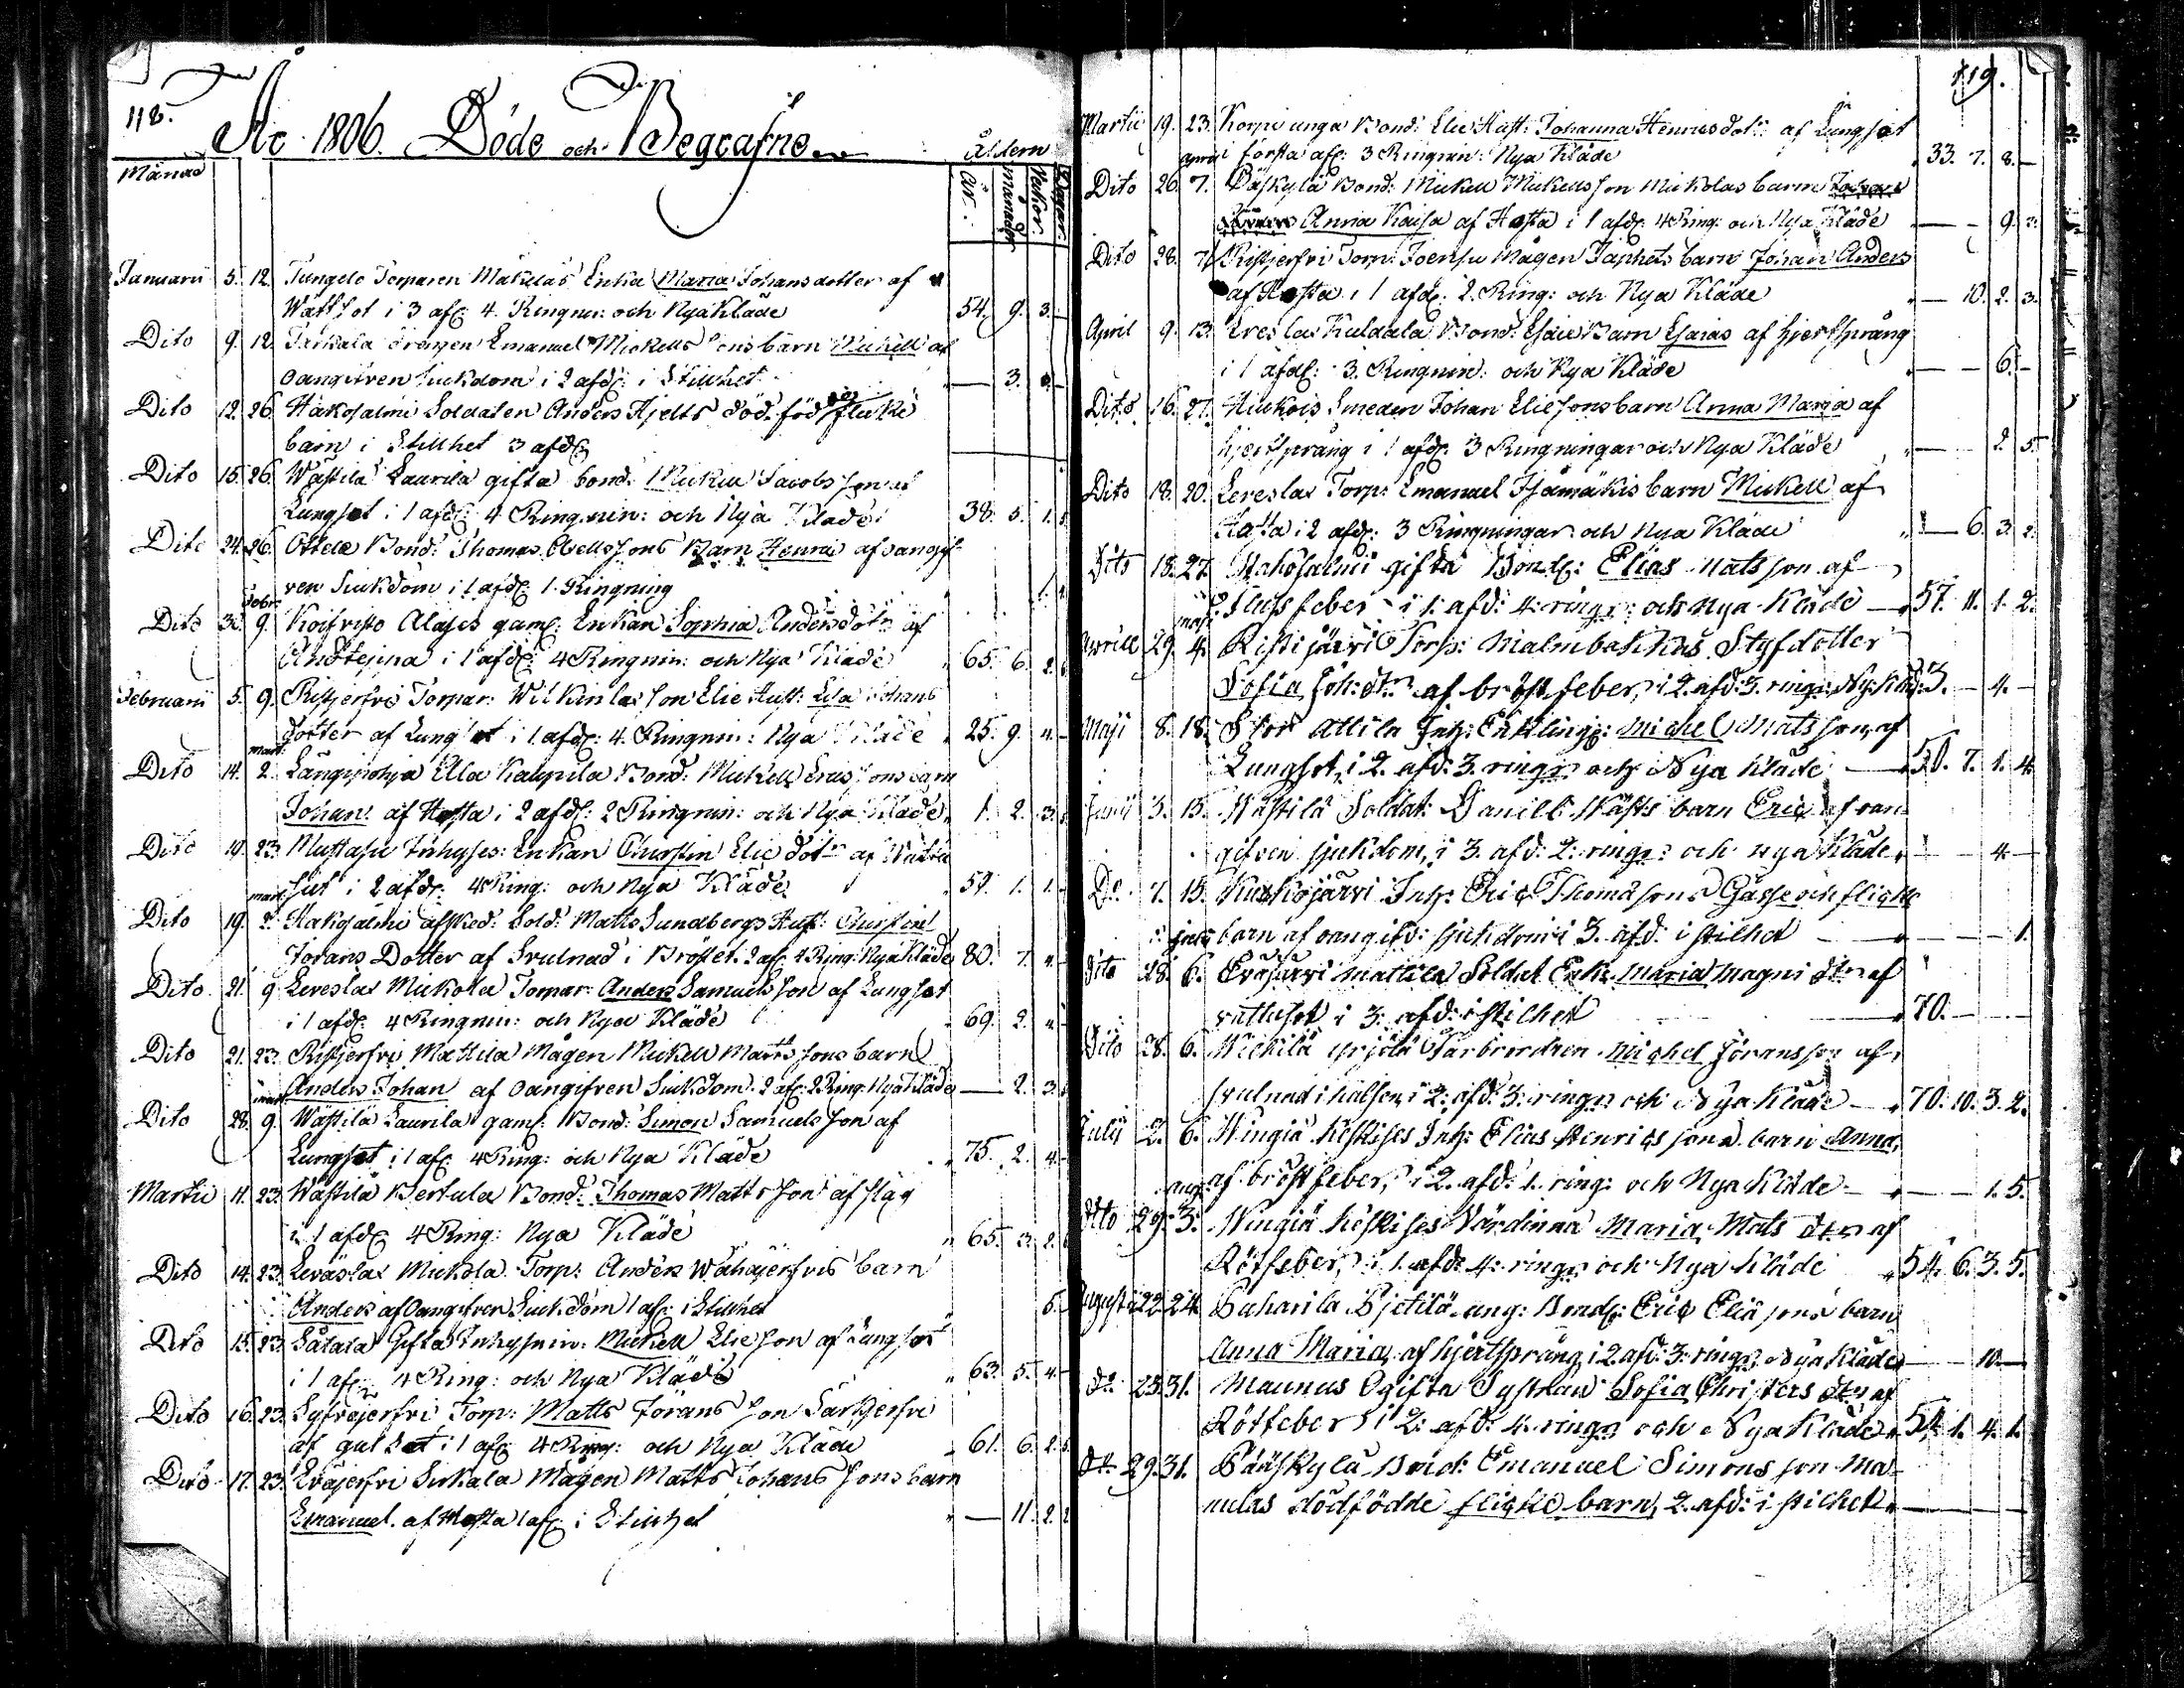 118.
År 1806. Döde och Begrafne
Månad
Åldern
År.
Månader
Veckor.
Dagar.
Januarii 5. 12. Tungelo Torparen Mäkiläs Enka Maria Johansdotter af
Wattsot i 3 afd: 4. Ringnin: och Nya Kläde 54. 9. 3. -
Dito 9. 12. drängen Emanuel Mickells sons barn Mickell af
oangifven siuckdom i 2 afd: i Stillhet — 3.
Dito 12. 26. Hakosalmi Soldaten Anders Hjelts död född flicke
barn i Stillhet 3 afd:
Dito 15. 26. Wästilä Laurila gifta bond: Mickell Jacobs son af
Lungsot i 1 afd: 4 Ringnin: och Nya Kläde 38. 5. 1.
Dito 24. 26. Bond: Thomas Axellssons Barn Henric af oangif
ven Siuckdom i 1 afd: 1. Ringning
Febr:
Dito 30. 9. Koifvisto gaml: Enkan Sophia Andersdotr af
i 1 afd: 4 Ringnin: och Nya Kläde 65. 6. 2.
Februarii 5. 9. Ristjerfvi Torpar: son Elie Hust: Lisa Johans
dotter af Lungsot i 1 afd: 4. Ringnin: Nya Kläde 25. 9.
mart:
Dito 14. 2. Långpohja Ala Kauppila Bond: Mickell Ericssons barn
Johan af Hosta i 2 afd: 2 Ringnin: och Nya Kläde 1. 2. 3.
Dito 19. 23. Mustasu Inhyses: Enkan Christin Elie dotr af Wattu
sut i 2 afd: 4 Ring: och Nya Kläde 59. 1. 1.
mart
Dito 19. 2. Hakosalmi afsked: Sold: Matts Sundbergs Hust: Christin
Jörans Dotter af Svulnad i Bröstet. 2 afd: 4 Ring: Nya Kläde 80. 7.
Dito 21. 9 Lereslax Mickola Torpar Anders Samuels son af Lungsot
i 1 afd: 4 Ringnin: och Nya Kläde 69. 2.
Dito 21. 23. Ristjerfvi Mattila Mågen Mickell Matts sons barn
Anders Johan af oangifven Siuckdom: 2 afd: 2 Ring: Nya Kläde — 2. 3.
mart
Dito 28. 9. Wästilä Laurila gaml: Bond: Simon Samuels son af
Lungsot i 1 afd: 4 Ring: och Nya Kläde 75. 2. 4.
Martii 11. 23. Wästilä Bertula Bond: Thomas Matts son af slag
i 1 afd: 4 Ring: Nya Kläde 65. 3. 2.
Dito 14. 23. Leräslax Mickola Torp: Anders Wähäjerfvis barn
Anders af oangifven Siuckdom 1 afd: i Stillhet 6.
Dito 15. 23. Sålala Gifta Inhysnin: Mickell Elie son af Lungsot
i 1 afd: 4 Ring: och Nya Kläde 63. 5. 4.
Dito 16. 23. Syfvejerfvi Torp: Matts Jörans son Särkjerfvi
af gul sot i 1 afd: 4 Ring: och Nya Kläde 61. 6. 2.
Dito 17. 23. Eväjerfvi Sirkala Mågen Matts Johans sons barn
Emanuel af Hosta 1 afd: i Stillhet — 11. 2. 2
119.
Martii 19. 23. Korpi unga Bond: Elie Hust: Johanna Henricsdotr af Lungsot
i första afd: 3 Ringnin: Nya Kläde 33. 7. 8. —
april
Dito 26. 7. Päskylä Bond: Mickell Mickellsson Mickolas barn
Anna Kaisa af Hosta i 1 afd: 4 Ring: och Nya Kläde — — 9. 3.
Dito 28. 7. Ristjerfvi Torp: Joensu Mågen Japhets barn Johan Anders
af Hosta i 1 afd: 2. Ring: och Nya Kläde — 10. 2. 3.
April 9. 13. Lereslax Kuldala Bond: Esaie Barn Esaias af hjertsprång
i 1 afd: 3. Ringnin: och Nya Kläde — — 6. -
Dito 16. 27. Smeden Johan Eliessons barn Anna Maria af
hjertsprång i 1 afd: 3 Ringningar och Nya Kläde — — 2 5.
Dito 18. 20. Lereslax Torp: Emanuel Isomäkis barn Mickell af
Hosta i 2 afd: 3 Ringningar och Nya Kläde — 6. 3 2.
Dito 18. 27. Hakosalmi gifta Bond: Elias Mats son af
Flussfeber i 1. afd: 4: ringn: och nya Kläde — 57. 11. 1. 2.
maji
Aprill 29. 4. Ristijärvi Torp: Malmbackas Styfdotter
Sofia Joh: dtr af bröstfeber, i 2. afd: 3. ringn: Ny: Kläd: 3. — 4. —
Maji 8. 18. Stor Attila Inh: Enkling: Michel Mats son, af
Lungsot, i 2. afd: 3. ringn: och Nya Kläde — 50. 7. 1. 4.
Junii 3. 15. Wästilä Soldat: Daniel Wästs barn Eric af oan
gifven sjukdom, i 3. afd: 2: ringn: och nya Kläde — — 4 —
Do. 7. 15. Kuskojärvi Inh: Eric Thomæsons Gosse och flicke
barn af oangifv: sjukdom i 3. afd: i stilhet — — — 1.
july
Dito 28. 6. Eväjärvi Mattila Soldat Enk: Maria Magni dtr af
vattusot i 3: afd: i stilhet — 70. — —
Dito 28. 6. Mickilä Yrjölä Farbrodren Michel Jöransson af
svulnad i halsen, i 2: afd: 3: ringn: och Nya Kläde — 70. 10. 3. 2.
Julii 2. 6. Wingiä Keskises Inh: Elias Henrics sons barn Anna,
af bröstfeber, i 2. afd: 1. ring: och Nya Kläde — — — 1. 5.
aug:
Dito 29. 3. Wingiä Keskises Värdinna Maria Mats dtr af
Rötfeber, i 1. afd: 4: ringn: och Nya Kläde 54. 6. 3. 5.
Augusti 22. 24. Paharila Pjetilä ung: Bond: Eric Eliæ sons barn
Anna Maria, af hjertsprång, i 2. afd: 3: ringn: Nya Kläde — — 10. —
do 25. 31. Maunus Ogifta Systran Sofia Christers dtr af
Rötfeber i 2: afd: 4. ringn: och Nya Kläde 54. 1. 4. 1.
do 29. 31. Päuskylä Bond: Emanuel Simons son Ma-
nulas dödfödde flicke barn, 2. afd: i stilhet — — —